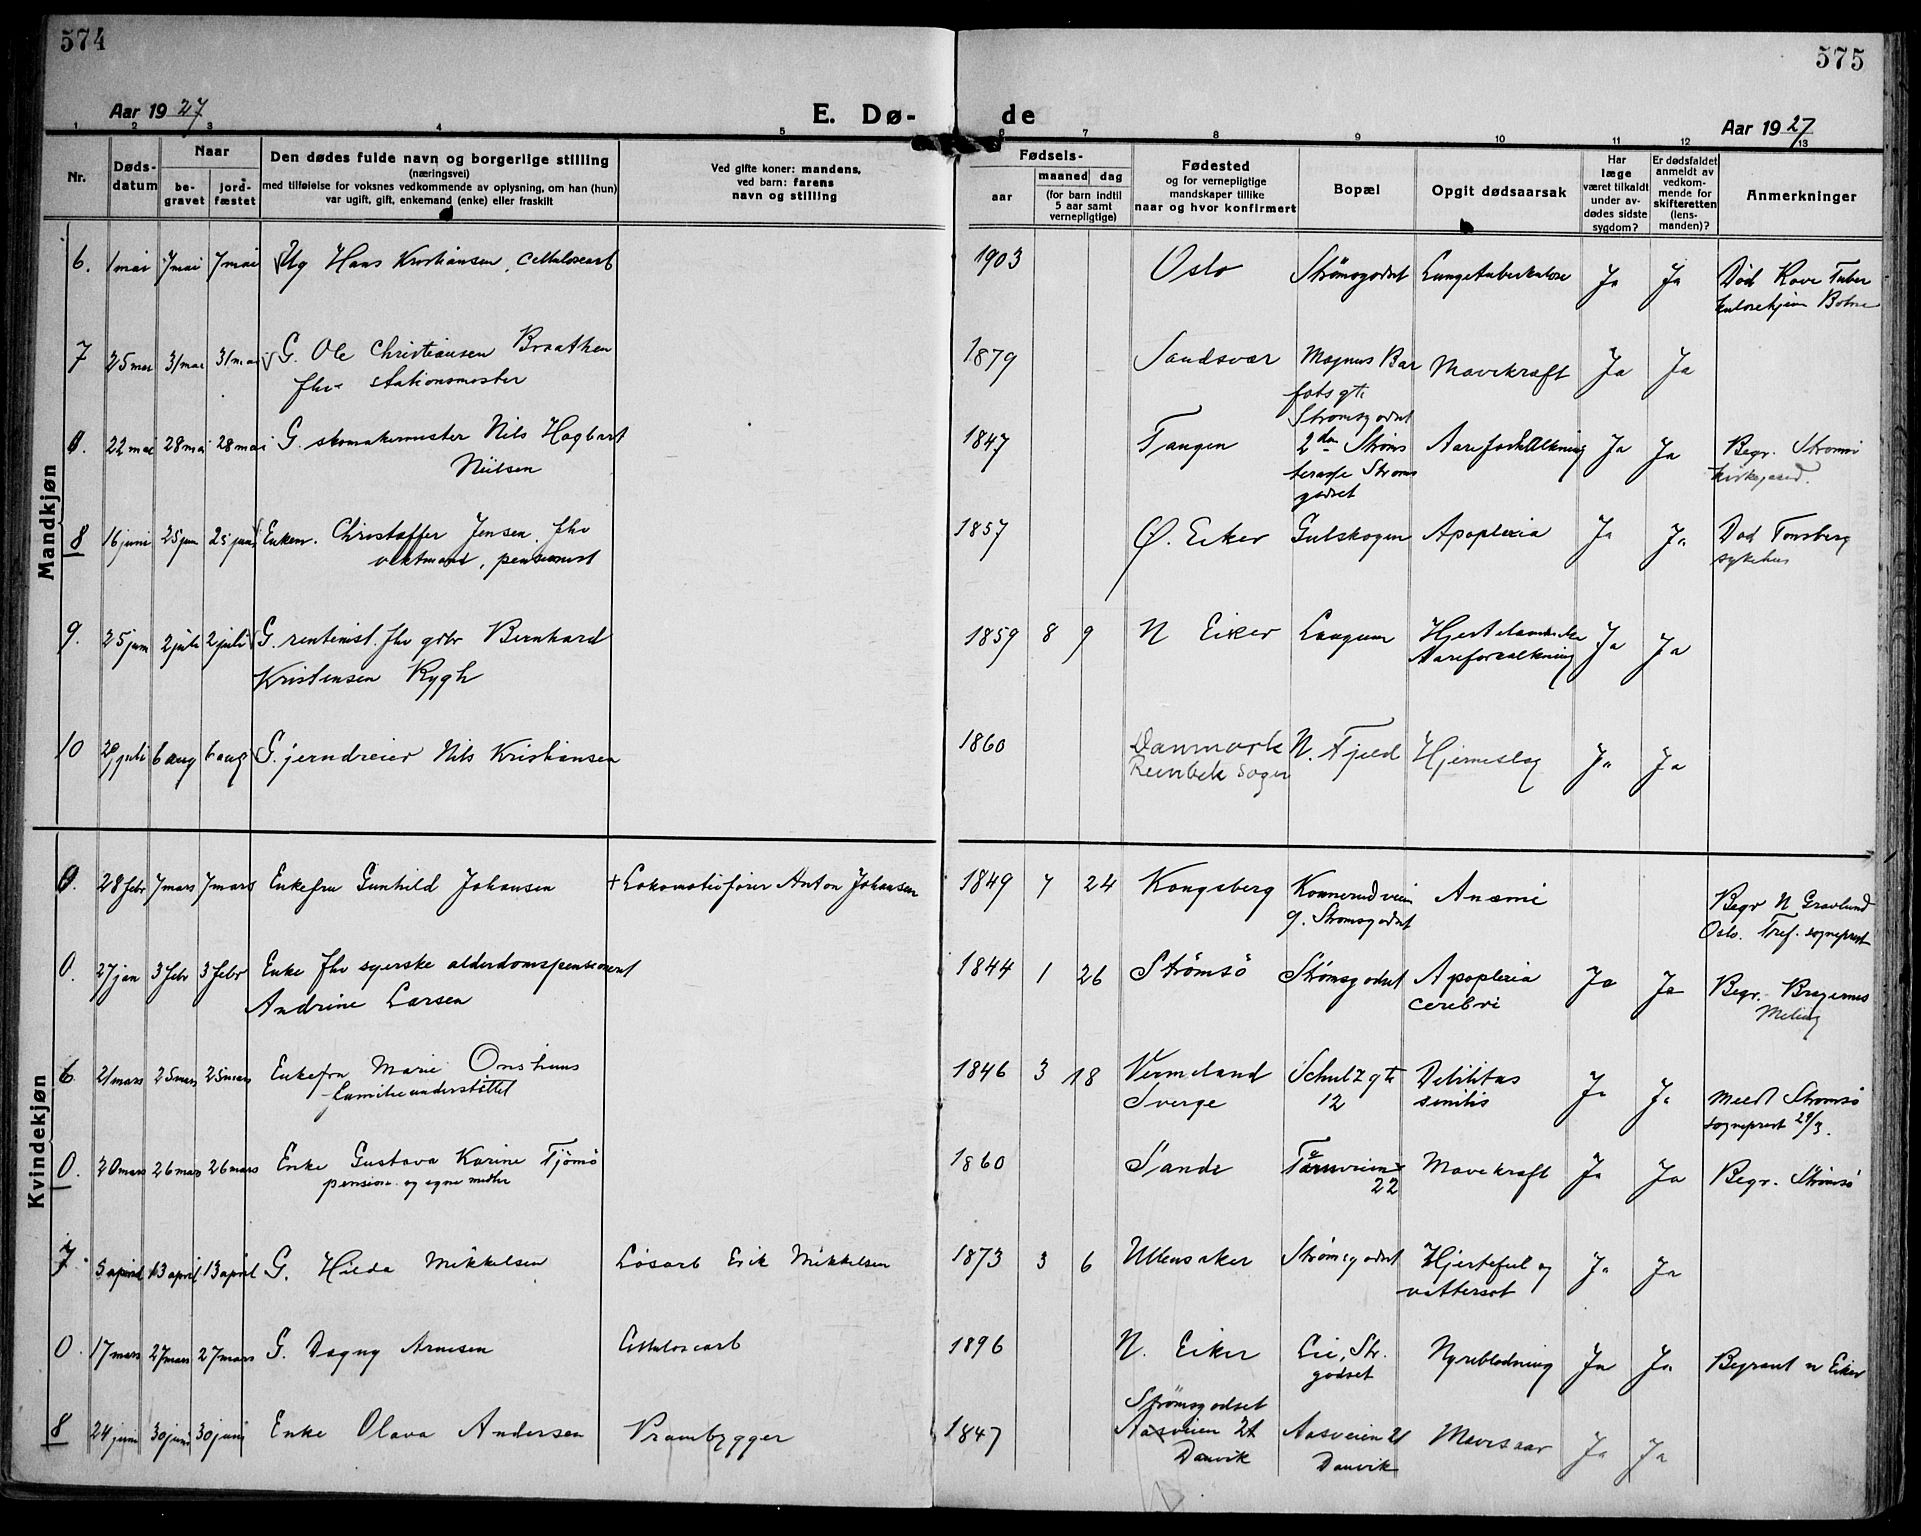 574
575
Aar 1927
E. Dø-
de
Aar 1927
1 2 3 4 5 6 7 8 9 10 11 12 13
Nr.
Døds-
datum
Naar
be-
gravet
jord-
fæstet
Den dødes fulde navn og borgerlige stilling
(næringsvei)
med tilføielse for voksnes vedkommende av oplysning, om han (hun)
var ugift, gift, enkemand (enke) eller fraskilt
Ved gifte koner: mandens,
ved barn: farens
navn og stilling
Fødsels-
aar
maaned
dag
(for barn indtil
5 aar samt
vernepligtige)
Fødested
og for vernepligtige
mandskaper tillike
naar og hvor konfirmert
Bopæl
Opgit dødsaarsak
Har
læge
været tilkaldt
under av-
dødes sidste
sygdom?
Er dødsfaldet
anmeldt av
vedkom-
mende for
skifteretten
(lens-
manden)?
Anmerkninger
Mandkjøn
6. 1 mai 7 mai 7 mai Ug Hans Kristiansen, Cellulosearb 1903 Oslo Strømsgodset Lungetuberkulose Ja Ja Død Rove Tuber
kulosehjem Botne
7 25 mai 31 mai 31 mai G. Ole Christiansen Braathen 1879 Sandsvær Magnus Bar Mavekræft Ja Ja
fhv stationsmester fots gt.
Strømsgodset
0. 22 mai 28 mai 28 mai G. skomakermester Nils Hagbart 1847 Tangen 2den Strøms Aareforkalkning Ja Ja Begr. Strømsø
Nielsen terasse Strøms kirkegaard.
godset
8 16 juni 25 jun 25 juni Enkem. Christoffer Jensen. fhv 1857 Ø. Eiker Gulskogen Apoplexia Ja Ja Død Tønsberg
vektmand, pensionist sykehus
9. 25 juni 2 juli 2 juli G. rentenist. fhv gdbr Bernhard 1859 8 9 N Eiker Laugum Ja Ja
Kristensen Rygh Aareforkalkning
10 juli 6 aug 6 aug G. jerndreier Nils Kristiansen 1860 Danmark N. Fjeld Hjerneslag Ja Ja
Reinbek Sogn
Kvindekjøn
0. 28 febr 7 mars 7 mars Enkefru Gunhild Johansen + Lokomotivfører Anton Johansen 1849 7 24 Kongsberg Konnerudveien Anæmi Begr N Gravlund
g. Strømsgodset Oslo. Tref. sogneprest
0. 27 jan 3 febr 3 febr Enke fhv syerske alderdomspensioneret 1844 1 26 Strømsø Strømsgodset Apoplexia Ja Ja Begr. Bragernes
Andrine Larsen cerebri Meling
6 21 mars 25 mars 25 mars Enkefru Marie Onshuus 1846 3 18 Vermeland Schultz gt. Debilitas Ja Ja meddt Strømsø
familieunderstøttet Sverge 12 senilis sogneprest 29/3.
0. 20 mars 26 mars 26 mars Enke Gustava Karine Tjömö 1860 Sande Taarnveien Mavekræft Ja Ja Begr. Strømsö
pension. og egne midler 22
7. 5 april 13 april 13 april G. Hilda Mikkelsen Løsarb Erik Mikkelsen 1873 3 6 Ullensaker Strömsgodset Hjertefeil og Ja Ja
vattersot
0. 17 mars 27 mars 27 mars G. Dagny Arnesen Cellulosearb 1896 N. Eiker Lie, Str. Nyreblødning Ja Ja Begravet N Eiker
godset
Strømsgodset
8 24 juni 30 juni 30 juni Enke Olava Andersen Prambygger 1847 Aasveien 21 Aasveien 21 Mavesaar Ja Ja
Danvik Danvik